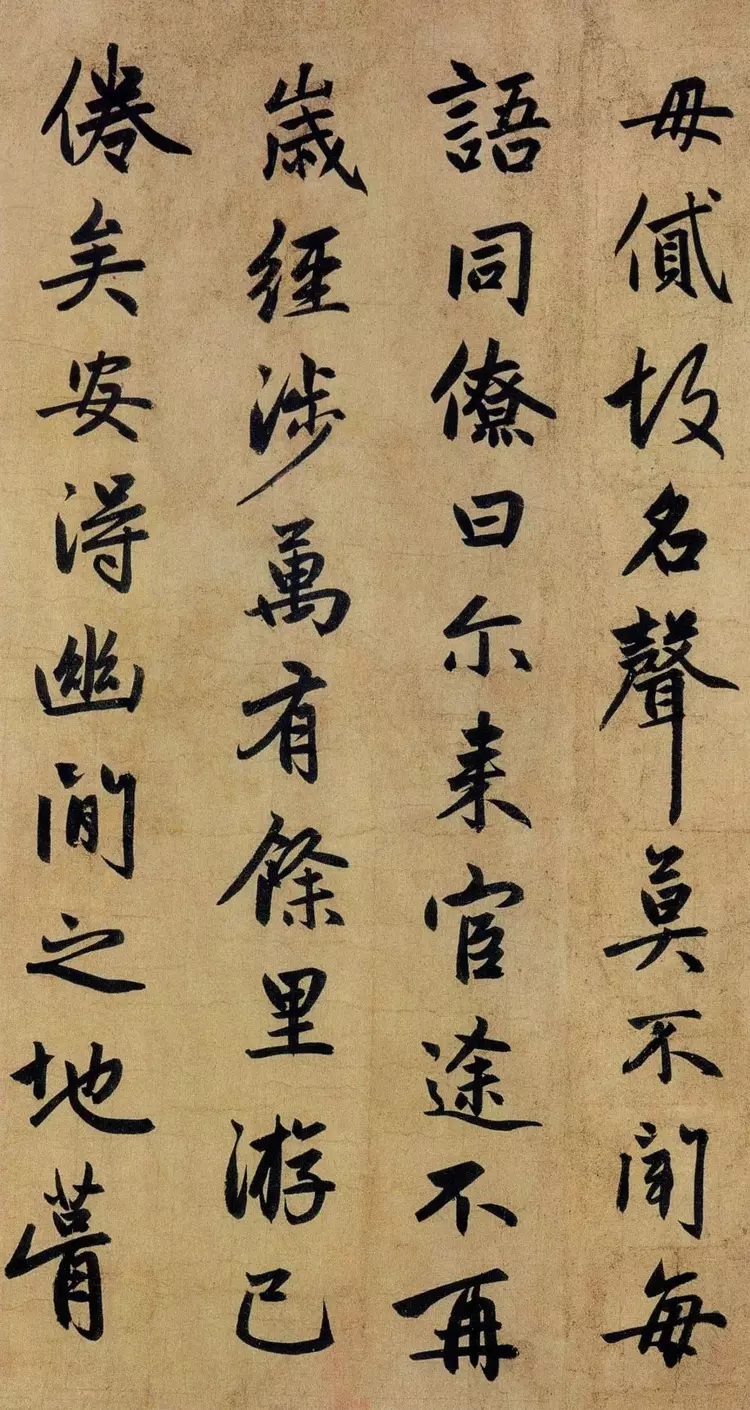 毋貳故名聲莫不聞每
語同僚曰尓来宦途不再
歳經涉萬有餘里游已
倦矣安得幽閒之地